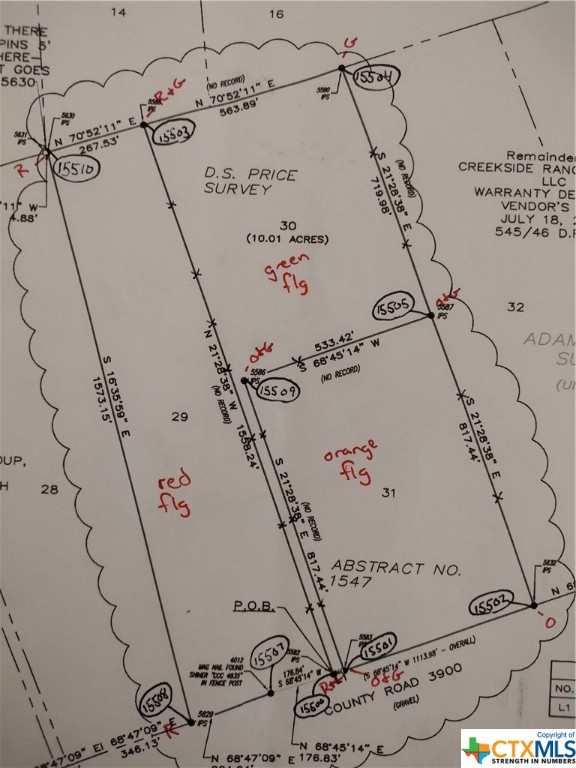 14
16
THERE
PINS 5'
HERE
T GOES
5630
G
15504
5580
IPS
(NO RECORD)
N 70°52'11" E
563.89'
R+G
IPS
15503
N 70°52'11" E
267.53'
5630
IPS
5631
IPS
R
15510
'11" W
4.88'
D.S. PRICE
SURVEY
30
(10.01 ACRES)
green
flg
(NO RECORD)
S 21°28'38" E
719.98'
Remainder
CREEKSIDE RANC
LLC
WARRANTY DE
VENDOR'S
JULY 18, 2
545/46 D.F
32
ADAM
SU
(U
15505
O+G
5587
IPS
533.42'
S 68°45'14" W
(NO RECORD)
O+G
5586
IPS
15509
N 21°28'38" W
1558.24'
(NO RECORD)
S 16°35'59" E
1573.15'
29
S 21°28'38" E
817.44'
orange
flg
31
red
flg
OUP,
H
28
S 21°28'38" E
817.44'
(NO RECORD)
ABSTRACT NO.
1547
P.O.B.
5632
IPS
15502
O
N 6
4012
MAG NAIL FOUND
SHINER "CCC 4835"
IN FENCE POST
15507
5582
IPS
176.84'
S 68°45'14" W
5583
IPS
15501
(S 68°45'14" W 1113.98' - OVERALL)
O+G
15500
COUNTY ROAD 3900
(GRAVEL)
15508
5629
IPS
R
68°47'09" E
346.13'
N 68°47'09" E
N 68°45'14" E
176.83'
NO.
L1
Copyright of
CTXMLS
STRENGTH IN NUMBERS